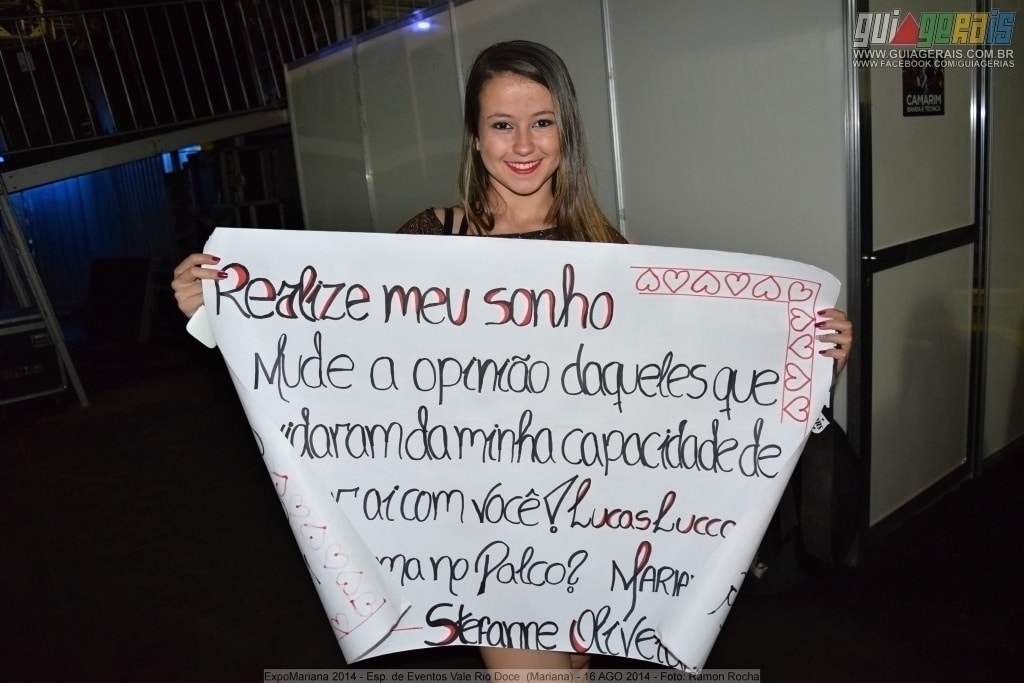 guiagerais
WWW.GUIAGERAIS.COM.BR
WWW.FACEBOOK.COM/GUIAGERIAS
CAMARIM
BANDA E TÉCNICA
Realize meu sonho
Mude a opinião daqueles que
da minha capacidade de
com você! Lucas Lucco
no Palco?
Stefanne
ExpoMariana 2014 - Esp. de Eventos Vale Rio Doce (Mariana) - 16 AGO 2014 - Foto: Ramon Rocha